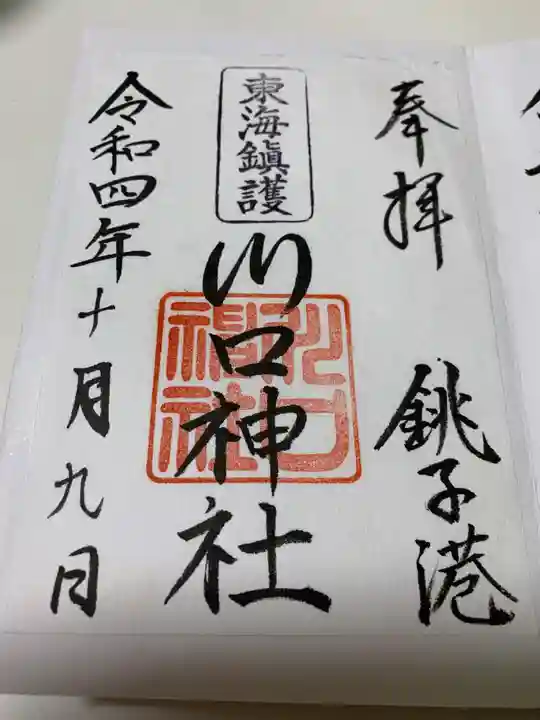 奉拝 銚子港
東海鎮護
川口神社
川口神社
令和四年十月九日